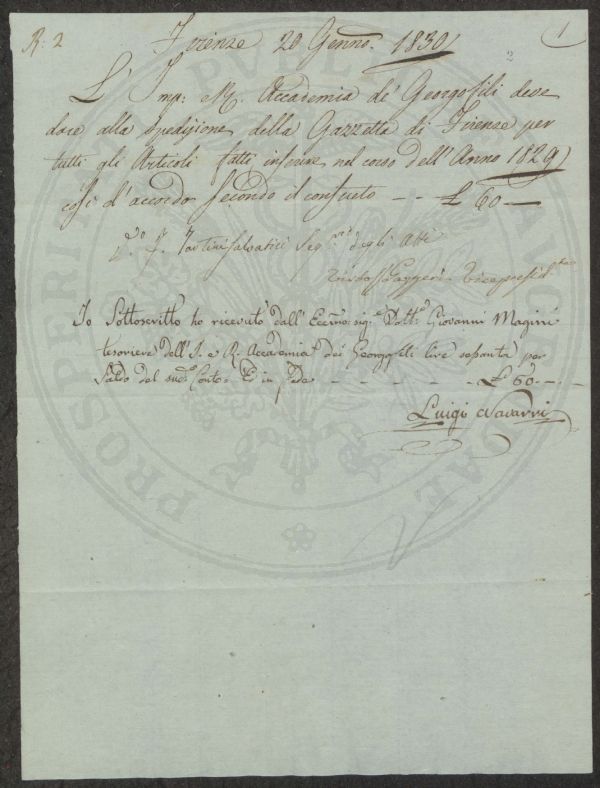 R: 2
1
2
Firenze 20 Genno. 1830
L' Imp: e R. Accademia de' Georgofili deve
dare alla spedizione della Gazzetta di Firenze per
tutti gli Articoli fatti inserire nel corso dell'Anno 1829
così d'accordo secondo il consueto - - £ 60 —
Vo. F. Tartini Salvatici Segrio degli Atti
Vicepresidte
Io Sottoscritto ho ricevuto dall'Eccmo. sige. Dotte. Giovanni Magini
tesoriere dell'I. e R. Accademia dei Georgofili lire sessanta per
Saldo del sudo. Conto = Ed in fede - - - - - - £ 60 - -
Luigi Navarri
PROSPERITATI PUBLICAE AUGENDAE